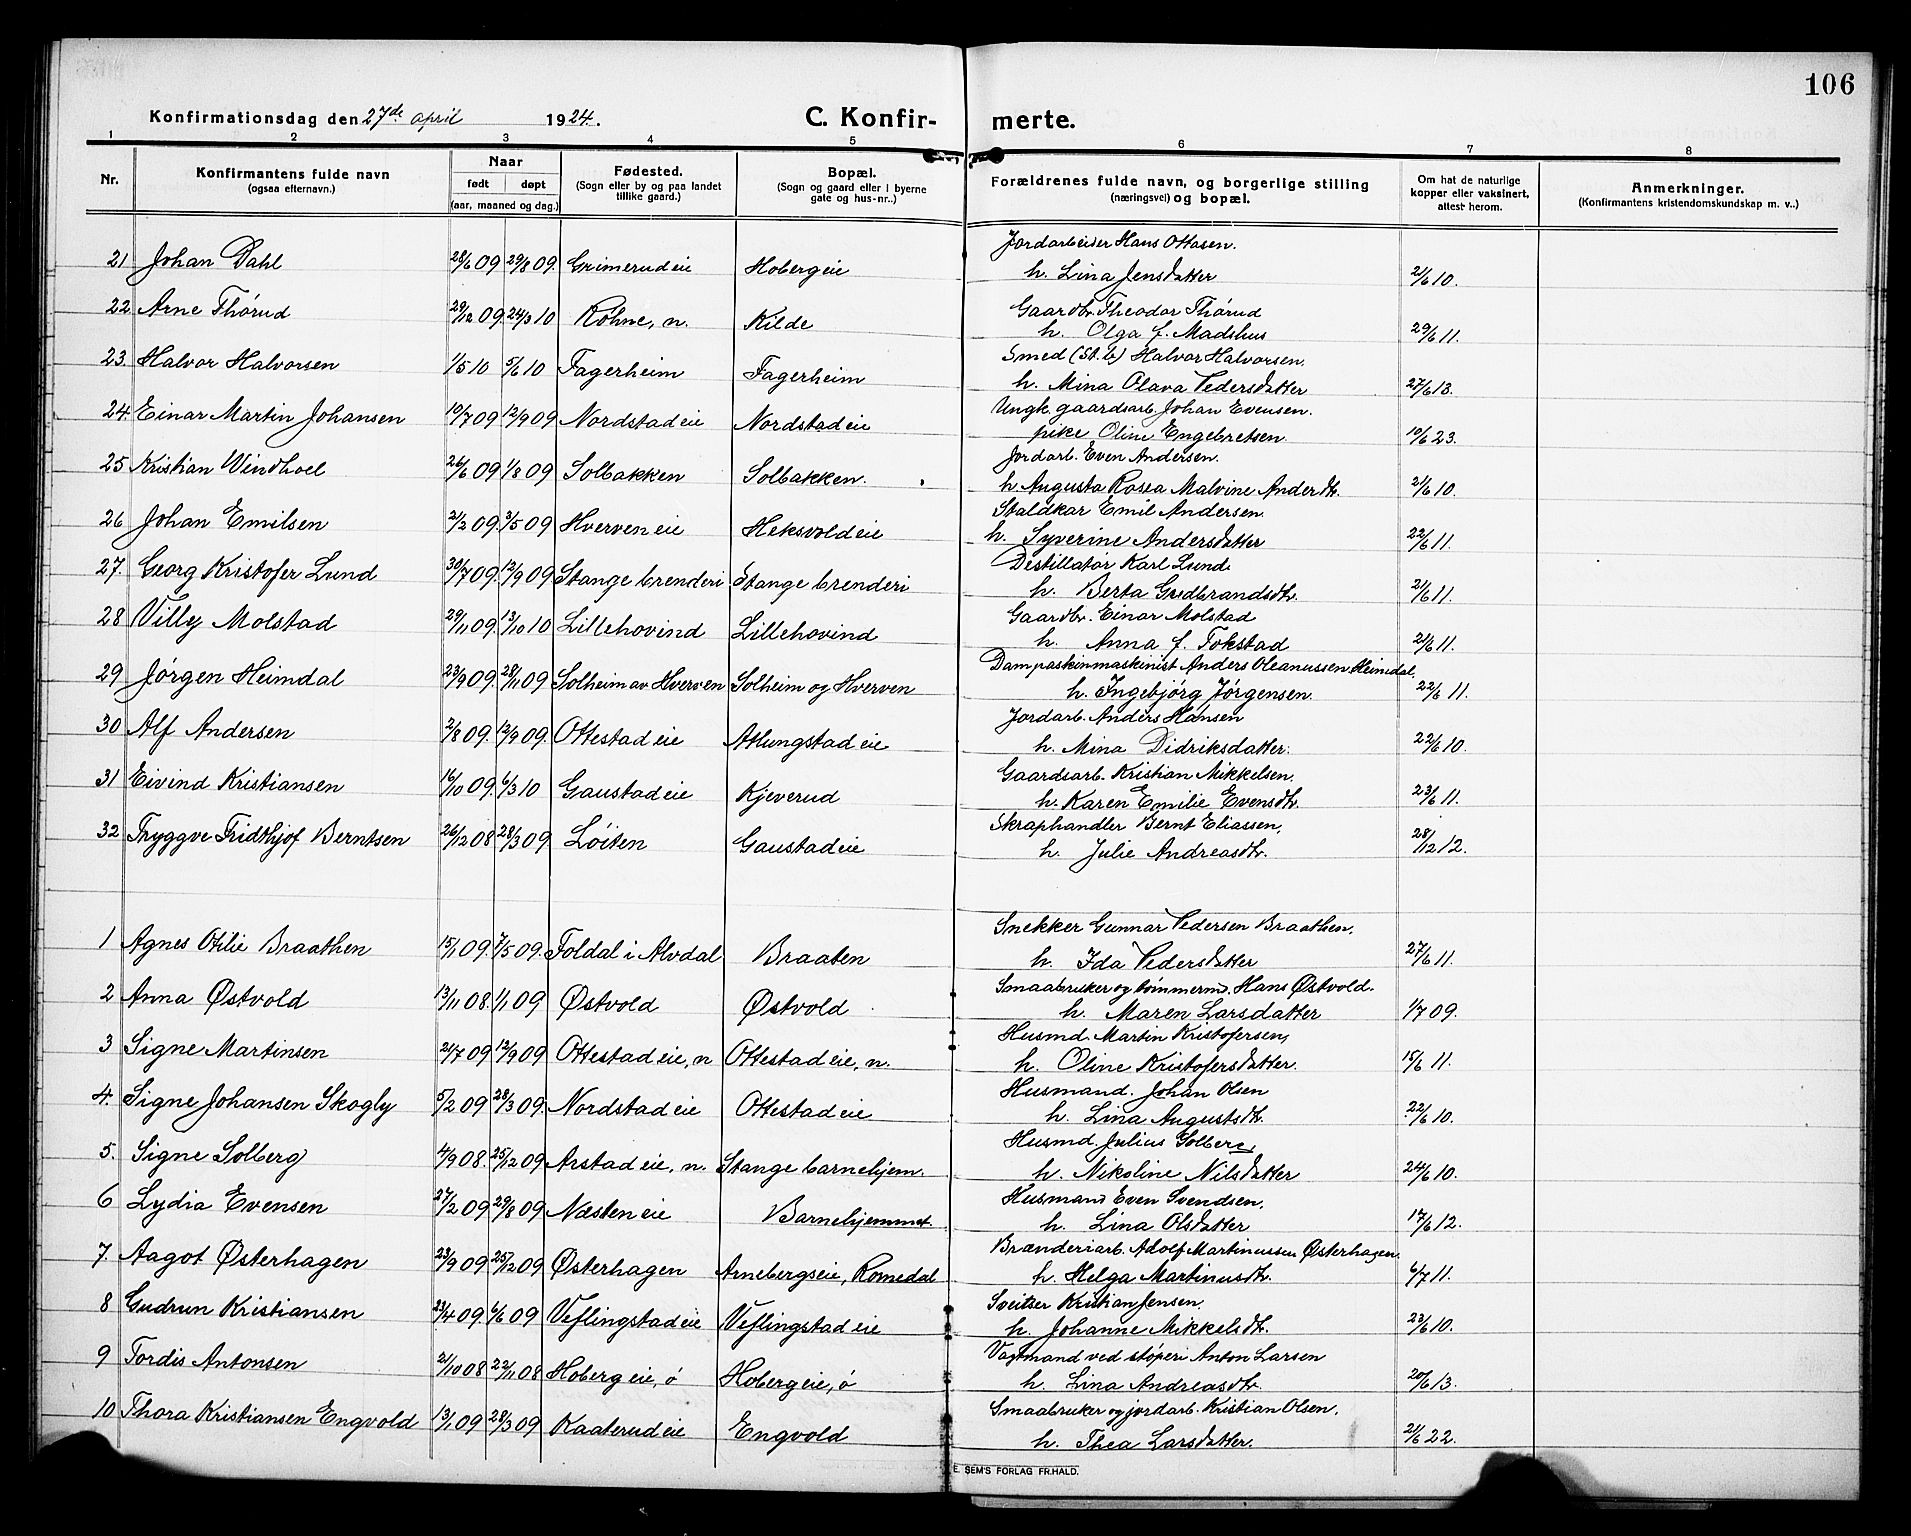 106
Konfirmationsdag den 27de april 1924. C. Konfir- merte.
1 2 3 4 5 6 7 8
Nr. Konfirmantens fulde navn (ogsaa efternavn.) Naar født døpt (aar, maaned og dag.) Fødested. (Sogn eller by og paa landet tillike gaard.) Bopæl. (Sogn og gaard eller i byerne gate og hus-nr..) Forældrenes fulde navn, og borgerlige stilling (næringsvei) og bopæl. Om hat de naturlige kopper eller vaksinert, attest herom. Anmerkninger. (Konfirmantens kristendomskundskap m. v..)
Jordarbeider Hans Ottosen.
21 Johan Dahl 28/6 09 29/8 09. Grimerudeie Hobergeie h. Lina Jensdatter 21/6 10.
22 Arne Thørud 29/12 09. 24/3 10 Røhne, n. Kilde Gaardbr. Theodor Thørud
h. Olga f. Madshus 29/6 11.
23. Halvor Halvorsen 1/5 10 5/6 10 Fagerheim Fagerheim Smed (St. b.) Halvor Halvorsen.
h. Mina Olava Pedersdatter 27/6 13.
24. Einar Martin Johansen 10/7 09 12/9 09 Nordstadeie Nordstadeie Ungk. gaardsarb. Johan Evensen.
pike Oline Engebretsen. 10/6 23.
25 Kristian Windhoel 26/6 09 1/8 09 Solbakken Solbakken. Jordarb. Even Andersen.
h. Augusta Rosea Malvine Andersdtr. 21/6 10.
26 Johan Emilsen 21/2 09. 3/5 09 Hverveneie Heksvoldeie Staldkar Emil Andersen.
h. Syverine Andersdatter 22/6 11.
27. Georg Kristofer Lund 30/7 09. 12/9 09 Stange brenderi Stange brenderi Destillatør Karl Lund
h. Berta Gudbrandsdtr. 21/6 11.
28 Villy Molstad 29/11 09. 13/10 10 Lillehovind Lillehovind Gaardbr. Einar Molstad
h. Anna f. Tokstad 21/6 11.
29 Jørgen Heimdal 23/9 09. 28/11 09 Solheim av Hverven Solheim og Hverven Dampaskinmaskinist Anders Oleanussen Heimdal,
h. Ingebjørg Jørgensen. 22/6 11.
30 Alf Andersen 2/8 09. 12/9 09. Ottestadeie Atlungstadeie Jordarb. Anders Hansen
h. Mina Didriksdatter. 22/6 10.
31 Eivind Kristiansen 16/10 09. 6/3 10 Gaustadeie Kjeverud Gaardsarb. Kristian Mikkelsen.
h. Karen Emilie Evensdtr. 23/6 11.
32 Tryggve Fridthjof Berntsen 26/12 08 28/3 09. Løiten Gaustadeie Skraphandler Bernt Eliassen,
h. Julie Andreasdtr. 28/12 12.
1 Agnes Otilie Braathen 15/1 09. 7/5 09. Foldal i Alvdal Braaten Snekker Gunnar Pedersen Braathen.
h. Ida Pedersdatter 27/6 11.
2 Anna Østvold 13/11 08. 1/1 09 Østvold Østvold Smaabruker og tømmerm. Hans Østvold.
h. Maren Larsdatter 1/7 09.
3 Signe Martinsen 21/7 09 12/9 09 Ottestadeie, n Ottestadeie, n. Husmd. Martin Kristofersen,
h. Oline Kristofersdatter. 15/6 11.
4. Signe Johansen Skogly 5/2 09 28/3 09. Nordstadeie Ottestadeie Husmand. Johan Olsen
h. Lina Augustsdtr. 22/6 10.
5. Signe Solberg 4/9 08. 25/12 09 Arstadeie, n. Stange barnehjem. Husmd. Julius Solberg,
h. Nikoline Nilsdatter 24/6 10.
6 Lydia Evensen 27/2 09 29/8 09 Næsteneie Barnehjemmet. Husmand Even Svendsen.
h. Lina Olsdatter 17/6 12.
7. Aagot Østerhagen 23/9 09 25/12 09 Østerhagen Arnebergseie, Romedal Brænderiarb. Adolf Martinussen Østerhagen.
h. Helga Martinusdtr. 6/7 11.
8 Gudrun Kristiansen 23/4 09. 6/6 09 Veflingstadeie Veflingstadeie Sveitser Kristian Jensen.
h. Johanne Mikkelsdtr. 23/6 10.
9 Tordis Antonsen 21/10 08 22/11 08 Hobergeie, ø Hobergeie, ø Vagtmand ved støperi Anton Larsen
h. Lina Andreasdtr. 20/6 13.
10 Thora Kristiansen Engvold 13/1 09 28/3 09 Kaaterudeie Engvold Smaabruker og jordarb. Kristian Olsen.
h. Thea Larsdatter. 21/6 22.
E. SEM'S FORLAG FR.HALD.